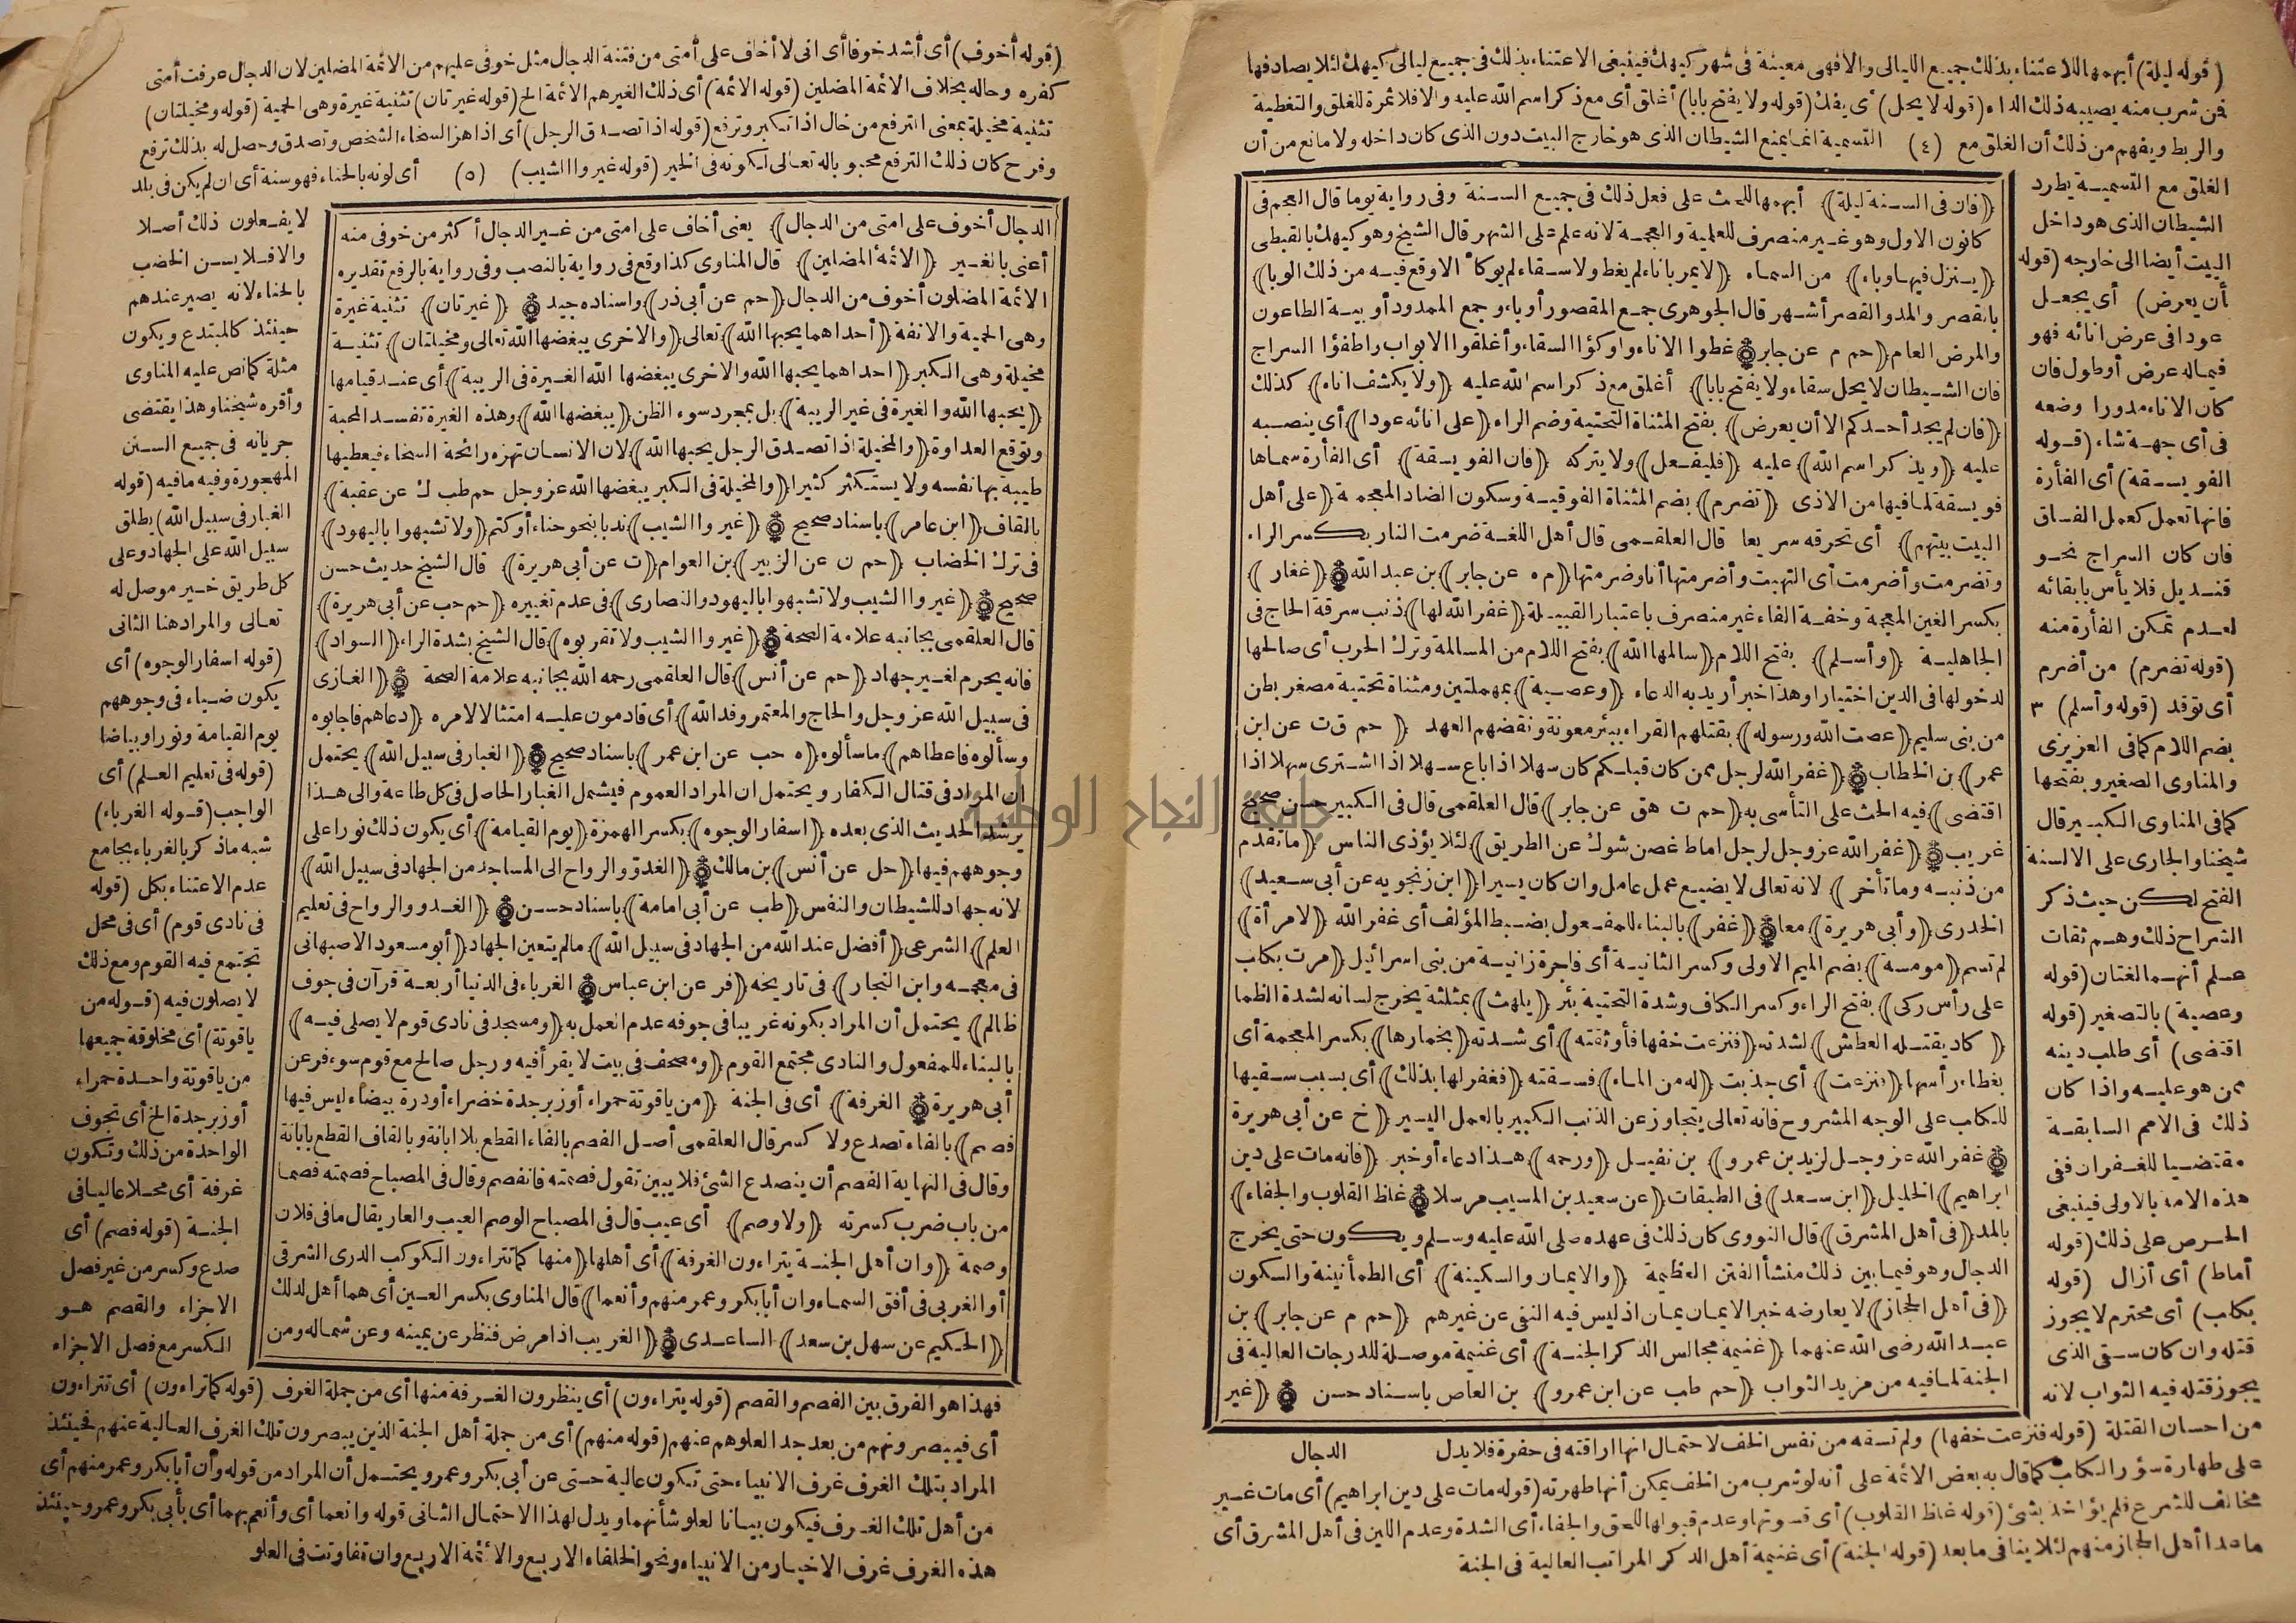 (قوله ليلة) أبهمها للاعتناء بذلك جميع الليالى والافهى معينة فى شهر كيهك فينبغى الاعتناء بذلك فى جميع ليالى كيهك لئلا يصادفها
فمن شرب منه يصيبه ذلك الداء (قوله لا يحل) أى يفك (قوله ولا يفتح بابا) أغلق أى مع ذكر اسم الله عليه والا فلا ثمرة للغلق والتغطية
والربط ويفهم من ذلك أن الغلق مع (٤) التسمية انما يمنع الشيطان الذى هو خارج البيت دون الذى كان داخله ولا مانع من أن
الغلق مع التسمية يطرد
الشيطان الذى هو داخل
البيت أيضا الى خارجه (قوله
أن يعرض) أى يجعل
عودا فى عرض انائه فهو
فيماله عرض أو طول فان
كان الاناء مدورا وضعه
فى أى جهة شاء (قوله
الفويسقة) أى الفأرة
فانها تعمل كعمل الفساق
فان كان السراج نحو
قنديل فلا بأس بابقائه
لعدم تمكن الفأرة منه
(قوله تضرم) من أضرم
أى توقد (قوله وأسلم) ٣
بضم اللام كما فى العزيزى
والمناوى الصغير وبفتحها
كما فى المناوى الكبير قال
شيخنا والجارى على الالسنة
الفتح لكن حيث ذكر
الشراح ذلك وهم ثقات
علم أنهما لغتان (قوله
وعصية) بالتصغير (قوله
اقتضى) أى طلب دينه
ممن هو عليه واذا كان
ذلك فى الامم السابقة
مقتضيا للغفران ففى
هذه الامة بالاولى فينبغى
الحرص على ذلك (قوله
أماط) أى أزال (قوله
بكلب) أى محترم لا يجوز
قتله وان كان سقى الذى
يجوز قتله فيه الثواب لانه
(فان فى السنة ليلة) أبهمها للحث على فعل ذلك فى جميع السنة وفى رواية يوما قال العجم فى
كانون الاول وهو غير منصرف للعلمية والعجمة لانه علم على الشهر قال الشيخ وهو كيهك بالقبطى
(ينزل فيها وباء) من السماء (لا يمر باناء لم يغط ولا سقاء لم يوكأ الا وقع فيه من ذلك الوبا)
بالقصر والمد والقصر أشهر قال الجوهرى جمع المقصور أوباء وجمع الممدود أوبية الطاعون
والمرض العام (حم م عن جابر) غطوا الاناء وأوكؤا السقاء وأغلقوا الابواب واطفؤا السراج
فان الشيطان لا يحل سقاء ولا يفتح بابا) أغلق مع ذكر اسم الله عليه (ولا يكشف اناء) كذلك
(فان لم يجد أحدكم الا أن يعرض) بفتح المثناة التحتية وضم الراء (على انائه عودا) أى ينصبه
عليه (ويذكر اسم الله) عليه (فليفعل) ولا يتركه (فان الفويسقة) أى الفأرة سماها
فويسقة لما فيها من الاذى (تضرم) بضم المثناة الفوقية وسكون الضاد المعجمة (على أهل
البيت بيتهم) أى تحرقه سريعا قال العلقمى قال أهل اللغة ضرمت النار بكسر الراء
وتضرمت وأضرمت أى التهبت وأضرمتها أنا وضرمتها (م ه عن جابر) بن عبد الله (غفار)
بكسر الغين المعجمة وخفة الفاء غير منصرف باعتبار القبيلة (غفر الله لها) ذنب سرقة الحاج فى
الجاهلية (وأسلم) بفتح اللام (سالمها الله) بفتح اللام من المسالمة وترك الحرب أى صالحها
لدخولها فى الدين اختيارا وهذا خبر أريد به الدعاء (وعصية) بمهملتين ومثناة تحتية مصغر بطن
من بنى سليم (عصت الله ورسوله) بقتلهم القراء ببئر معونة ونقضهم العهد (حم ق ت عن ابن
عمر) بن الخطاب (غفر الله لرجل ممن كان قبلكم كان سهلا اذا باع سهلا اذا اشترى سهلا اذا
اقتضى) فيه الحث على التأسى به (حم ت هق عن جابر) قال العلقمى قال فى الكبير حسن صحيح
غريب (غفر الله عز وجل لرجل اماط غصن شوك عن الطريق) لئلا يؤذى الناس (ما تقدم
من ذنبه وما تأخر) لانه تعالى لا يضيع عمل عامل وان كان يسيرا (ابن زنجويه عن أبى سعيد)
الخدرى (وأبى هريرة) معا (غفر) بالبناء للمفعول بضبط المؤلف أى غفر الله (لامرأة)
لم تسم (مومسة) بضم الميم الاولى وكسر الثانية أى فاجرة زانية من بنى اسرائيل (مرت بكلب
على رأس ركى) بفتح الراء وكسر الكاف وشدة التحتية بئر (يلهث) بمثلثة يخرج لسانه لشدة الظما
(كاد يقتله العطش) لشدته (فنزعت خفها فأوثقته) أى شدته (بخمارها) بكسر المعجمة أى
بغطاء رأسها (فنزعت) أى جذبت (له من الماء) فسقته (فغفر لها بذلك) أى بسبب سقيها
للكلب على الوجه المشروح فانه تعالى يتجاوز عن الذنب الكبير بالعمل اليسير (خ عن أبى هريرة
غفر الله عز وجل لزيد بن عمرو) بن نفيل (ورحمه) هذا دعاء أو خبر (فانه مات على دين
ابراهيم) الخليل (ابن سعد) فى الطبقات (عن سعيد بن المسيب مرسلا (غلظ القلوب والجفاء)
بالمد (فى أهل المشرق) قال النووى كان ذلك فى عهده صلى الله عليه وسلم ويكون حتى يخرج
الدجال وهو فيما بين ذلك منشأ الفتن العظيمة (والايمان والسكينة) أى الطمأنينة والسكون
(فى أهل الحجاز) لا يعارضه خبر الايمان يمان اذ ليس فيه النفى عن غيرهم (حم م عن جابر) بن
عبد الله رضى الله عنهما (غنيمة مجالس الذكر الجنة) أى غنيمة موصلة للدرجات العالية فى
الجنة لما فيه من مزيد الثواب (حم طب عن ابن عمرو) بن العاص باسناد حسن (غير
من احسان القتلة (قوله فنزعت خفها) ولم تسقه من نفس الخف لاحتمال انها اراقته فى حفرة فلا يدل الدجال
على طهارة سؤر الكلب كما قال به بعض الائمة على أنه لو شرب من الخف يمكن أنها طهرته (قوله مات على دين ابراهيم) أى مات غير
مخالف للشرع فلم يؤاخذ بشئ (قوله غلظ القلوب) أى قسوتها وعدم قبولها للحق والجفاء أى الشدة وعدم اللين فى أهل المشرق أى
ما عدا أهل الحجاز منهم لئلا ينافى ما بعد (قوله الجنة) أى غنيمة أهل الذكر المراتب العالية فى الجنة
(قوله أخوف) أى أشد خوفا أى انى لا أخاف على أمتى من فتنة الدجال مثل خوفى عليهم من الائمة المضلين لان الدجال عرفت أمتى
كفره وحاله بخلاف الائمة المضلين (قوله الائمة) أى ذلك الغير هم الائمة الخ (قوله غيرتان) تثنية غيرة وهى الحمية (قوله ومخيلتان)
تثنية مخيلة بمعنى الترفع من خال اذا تكبر وترفع (قوله اذا تصدق الرجل) أى اذا هز السخاء الشخص وتصدق وحصل له بذلك ترفع
وفرح كان ذلك الترفع محبوبا له تعالى لكونه فى الخير (قوله غيروا الشيب) (٥) أى لونه بالحناء فهو سنة أى ان لم يكن فى بلد
الدجال أخوف على امتى من الدجال) يعنى أخاف على امتى من غير الدجال أكثر من خوفى منه
أعنى بالغير (الائمة المضلين) قال المناوى كذا وقع فى رواية بالنصب وفى رواية بالرفع تقديره
الائمة المضلون أخوف من الدجال (حم عن أبى ذر) واسناده جيد (غيرتان) تثنية غيرة
وهى الحمية والانفة (أحداهما يحبها الله) تعالى (والاخرى يبغضها الله تعالى ومخيلتان) تثنية
مخيلة وهى الكبر (احداهما يحبها الله والاخرى يبغضها الله الغيرة فى الريبة) أى عند قيامها
(يحبها الله والغيرة فى غير الريبة) بل بمجرد سوء الظن (يبغضها الله) وهذه الغيرة تفسد المحبة
وتوقع العداوة (والمخيلة اذا تصدق الرجل يحبها الله) لان الانسان تهزه رائحة السخاء فيعطيها
طيبة بها نفسه ولا يستكثر كثيرا (والمخيلة فى الكبر يبغضها الله عز وجل حم طب ك عن عقبة)
بالقاف (ابن عامر) باسناد صحيح (غيروا الشيب) ندبا بنحو حناء أو كتم (ولا تشبهوا باليهود)
فى ترك الخضاب (حم ن عن الزبير) بن العوام (ت عن أبى هريرة) قال الشيخ حديث حسن
صحيح (غيروا الشيب ولا تشبهوا باليهود والنصارى) فى عدم تغييره (حم حب عن أبى هريرة)
قال العلقمى بجانبه علامة الصحة (غيروا الشيب ولا تقربوه) قال الشيخ بشدة الراء (السواد)
فانه يحرم لغير جهاد (حم عن أنس) قال العلقمى رحمه الله بجانبه علامة الصحة (الغازى
فى سبيل الله عز وجل والحاج والمعتمر وفد الله) أى قادمون عليه امتثالا لامره (دعاهم فاجابوه
وسألوه فاعطاهم) ما سألوه (ه حب عن ابن عمر) باسناد صحيح (الغبار فى سبيل الله) يحتمل
ان المراد فى قتال الكفار ويحتمل ان المراد العموم فيشمل الغبار الحاصل فى كل طاعة والى هذا
يرشد الحديث الذى بعده (اسفار الوجوه) بكسر الهمزة (يوم القيامة) أى يكون ذلك نورا على
وجوههم فيها (حل عن أنس) بن مالك (الغدو والرواح الى المساجد من الجهاد فى سبيل الله)
لانه جهاد للشيطان والنفس (طب عن أبى امامة) باسناد حسن (الغدو والرواح فى تعليم
العلم) الشرعى (أفضل عند الله من الجهاد فى سبيل الله) ما لم يتعين الجهاد (أبو مسعود الاصبهانى
فى معجمه وابن النجار) فى تاريخه (فر عن ابن عباس الغرباء فى الدنيا أربعة قرآن فى جوف
ظالم) يحتمل أن المراد بكونه غريبا فى جوفه عدم العمل به (ومسجد فى نادى قوم لا يصلى فيه)
بالبناء للمفعول والنادى مجتمع القوم (ومصحف فى بيت لا يقرأ فيه ورجل صالح مع قوم سوء فر عن
أبى هريرة الغرفة) أى فى الجنة (من ياقوتة حمراء أو زبرجدة خضراء أو درة بيضاء ليس فيها
فصم) بالفاء تصدع ولا كسر قال العلقمى أصل الفصم بالفاء القطع بلا ابانة وبالقاف القطع بابانة
وقال فى النهاية الفصم أن ينصدع الشئ فلا يبين تقول فصمته فانفصم وقال فى المصباح فصمته فصما
من باب ضرب كسرته (ولا وصم) أى عيب قال فى المصباح الوصم العيب والعار يقال ما فى فلان
وصمة (وان أهل الجنة يتراءون الغرفة) أى أهلها (منها كما تتراءون الكوكب الدرى الشرقى
أو الغربى فى أفق السماء وان أبا بكر وعمر منهم وأنعما) قال المناوى بكسر العين أى هما أهل لذلك
(الحكيم عن سهل بن سعد) الساعدى (الغريب اذا مرض فنظر عن يمينه وعن شماله ومن
لا يفعلون ذلك أصلا
والا فلا يسن الخضب
بالحناء لانه يصير عندهم
حينئذ كالمبتدع ويكون
مثلة كما نص عليه المناوى
وأقره شيخنا وهذا يقتضى
جريانه فى جميع السنن
المهجورة وفيه ما فيه (قوله
الغبار فى سبيل الله) يطلق
سبيل الله على الجهاد وعلى
كل طريق خير موصل له
تعالى والمراد هنا الثانى
(قوله اسفار الوجوه) أى
يكون ضياء فى وجوههم
يوم القيامة ونورا وبياضا
(قوله فى تعليم العلم) أى
الواجب (قوله الغرباء)
شبه ما ذكر بالغرباء بجامع
عدم الاعتناء بكل (قوله
فى نادى قوم) أى فى محل
تجتمع فيه القوم ومع ذلك
لا يصلون فيه (قوله من
ياقوتة) أى مخلوقة جميعها
من ياقوتة واحدة حمراء
أو زبرجدة الخ أى تجوف
الواحدة من ذلك وتكون
غرفة أى محلا عاليا فى
الجنة (قوله فصم) أى
صدع وكسر من غير فصل
الاجزاء والقصم هو
الكسر مع فصل الاجزاء
فهذا هو الفرق بين الفصم والقصم (قوله يتراءون) أى ينظرون الغرفة منها أى من جملة الغرف (قوله كما تراءون) أى تتراءون
أى فيبصرونهم من بعد جدا لعلوهم عنهم (قوله منهم) أى من جملة أهل الجنة الذين يبصرون تلك الغرف العالية عنهم فحينئذ
المراد بتلك الغرف غرف الانبياء حتى تكون عالية حتى عن أبى بكر وعمر ويحتمل أن المراد من قوله وأن أبا بكر وعمر منهم أى
من أهل تلك الغرف فيكون بيانا لعلو شأنهما ويدل لهذا الاحتمال الثانى قوله وانعما أى وأنعم بهما أى بأبى بكر وعمر وحينئذ
هذه الغرف غرف الاخيار من الانبياء ونحو الخلفاء الاربع والائمة الاربع وان تفاوتت فى العلو
جامعة النجاح الوطنية